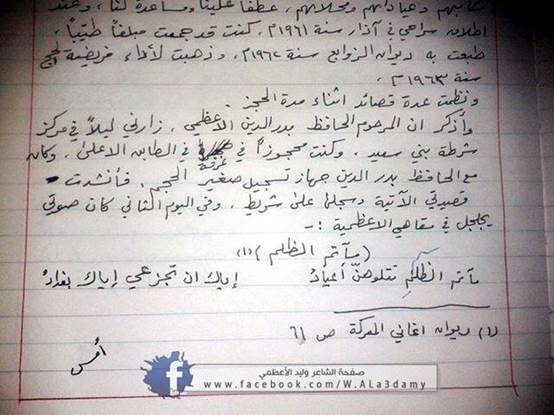 مكاتبهم وعياداتهم ومحلاتهم، عطفاً علينا ومساعدة لنا، وعند
اطلاق سراحي في آذار سنة ١٩٦١م. كنت قد جمعت مبلغاً طيّباً،
طبعت به ديوان الزوابع سنة ١٩٦٢م، وذهبت لأداء فريضة الحج
سنة ١٩٦٣م.
ونظمت عدة قصائد اثناء مدة الحجز.
وأذكر ان المرحوم الحافظ بدر الدين الاعظمي، زارني ليلاً في مركز
شرطة بني سعيد، وكنت محجوزاً في غرفة في الطابق الاعلى، وكان
مع الحافظ بدر الدين جهاز تسجيل صغير الحجم، فأنشدت
قصيدتي الآتية وسجلها على شريط، وفي اليوم الثاني كان صوتي
يجلجل في مقاهي الاعظمية :-
(مآتم الظلم) (١)
مآتم الظلم تتلوهنّ أعيادُ إياك ان تجزعي إياك بغدادُ
(١) ديوان اغاني المعركة ص ٦١
أمس
صفحة الشاعر وليد الأعظمي
www.facebook.com/W.ALa3damy
f